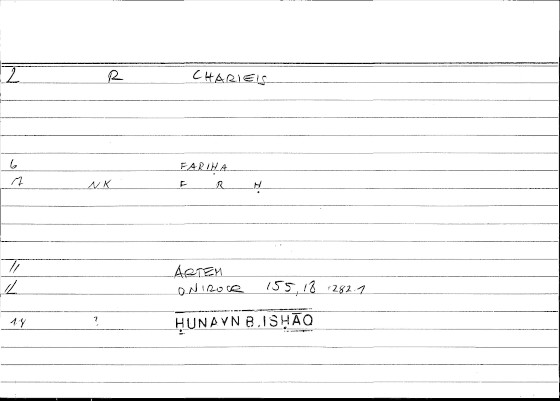 2 R CHARIEIS
6 FARIḤA
7 NK F R Ḥ
11 ARTEM
12 ONIROCR 155,18 1282.1
14 ? ḤUNAYN B. ISḤĀQ